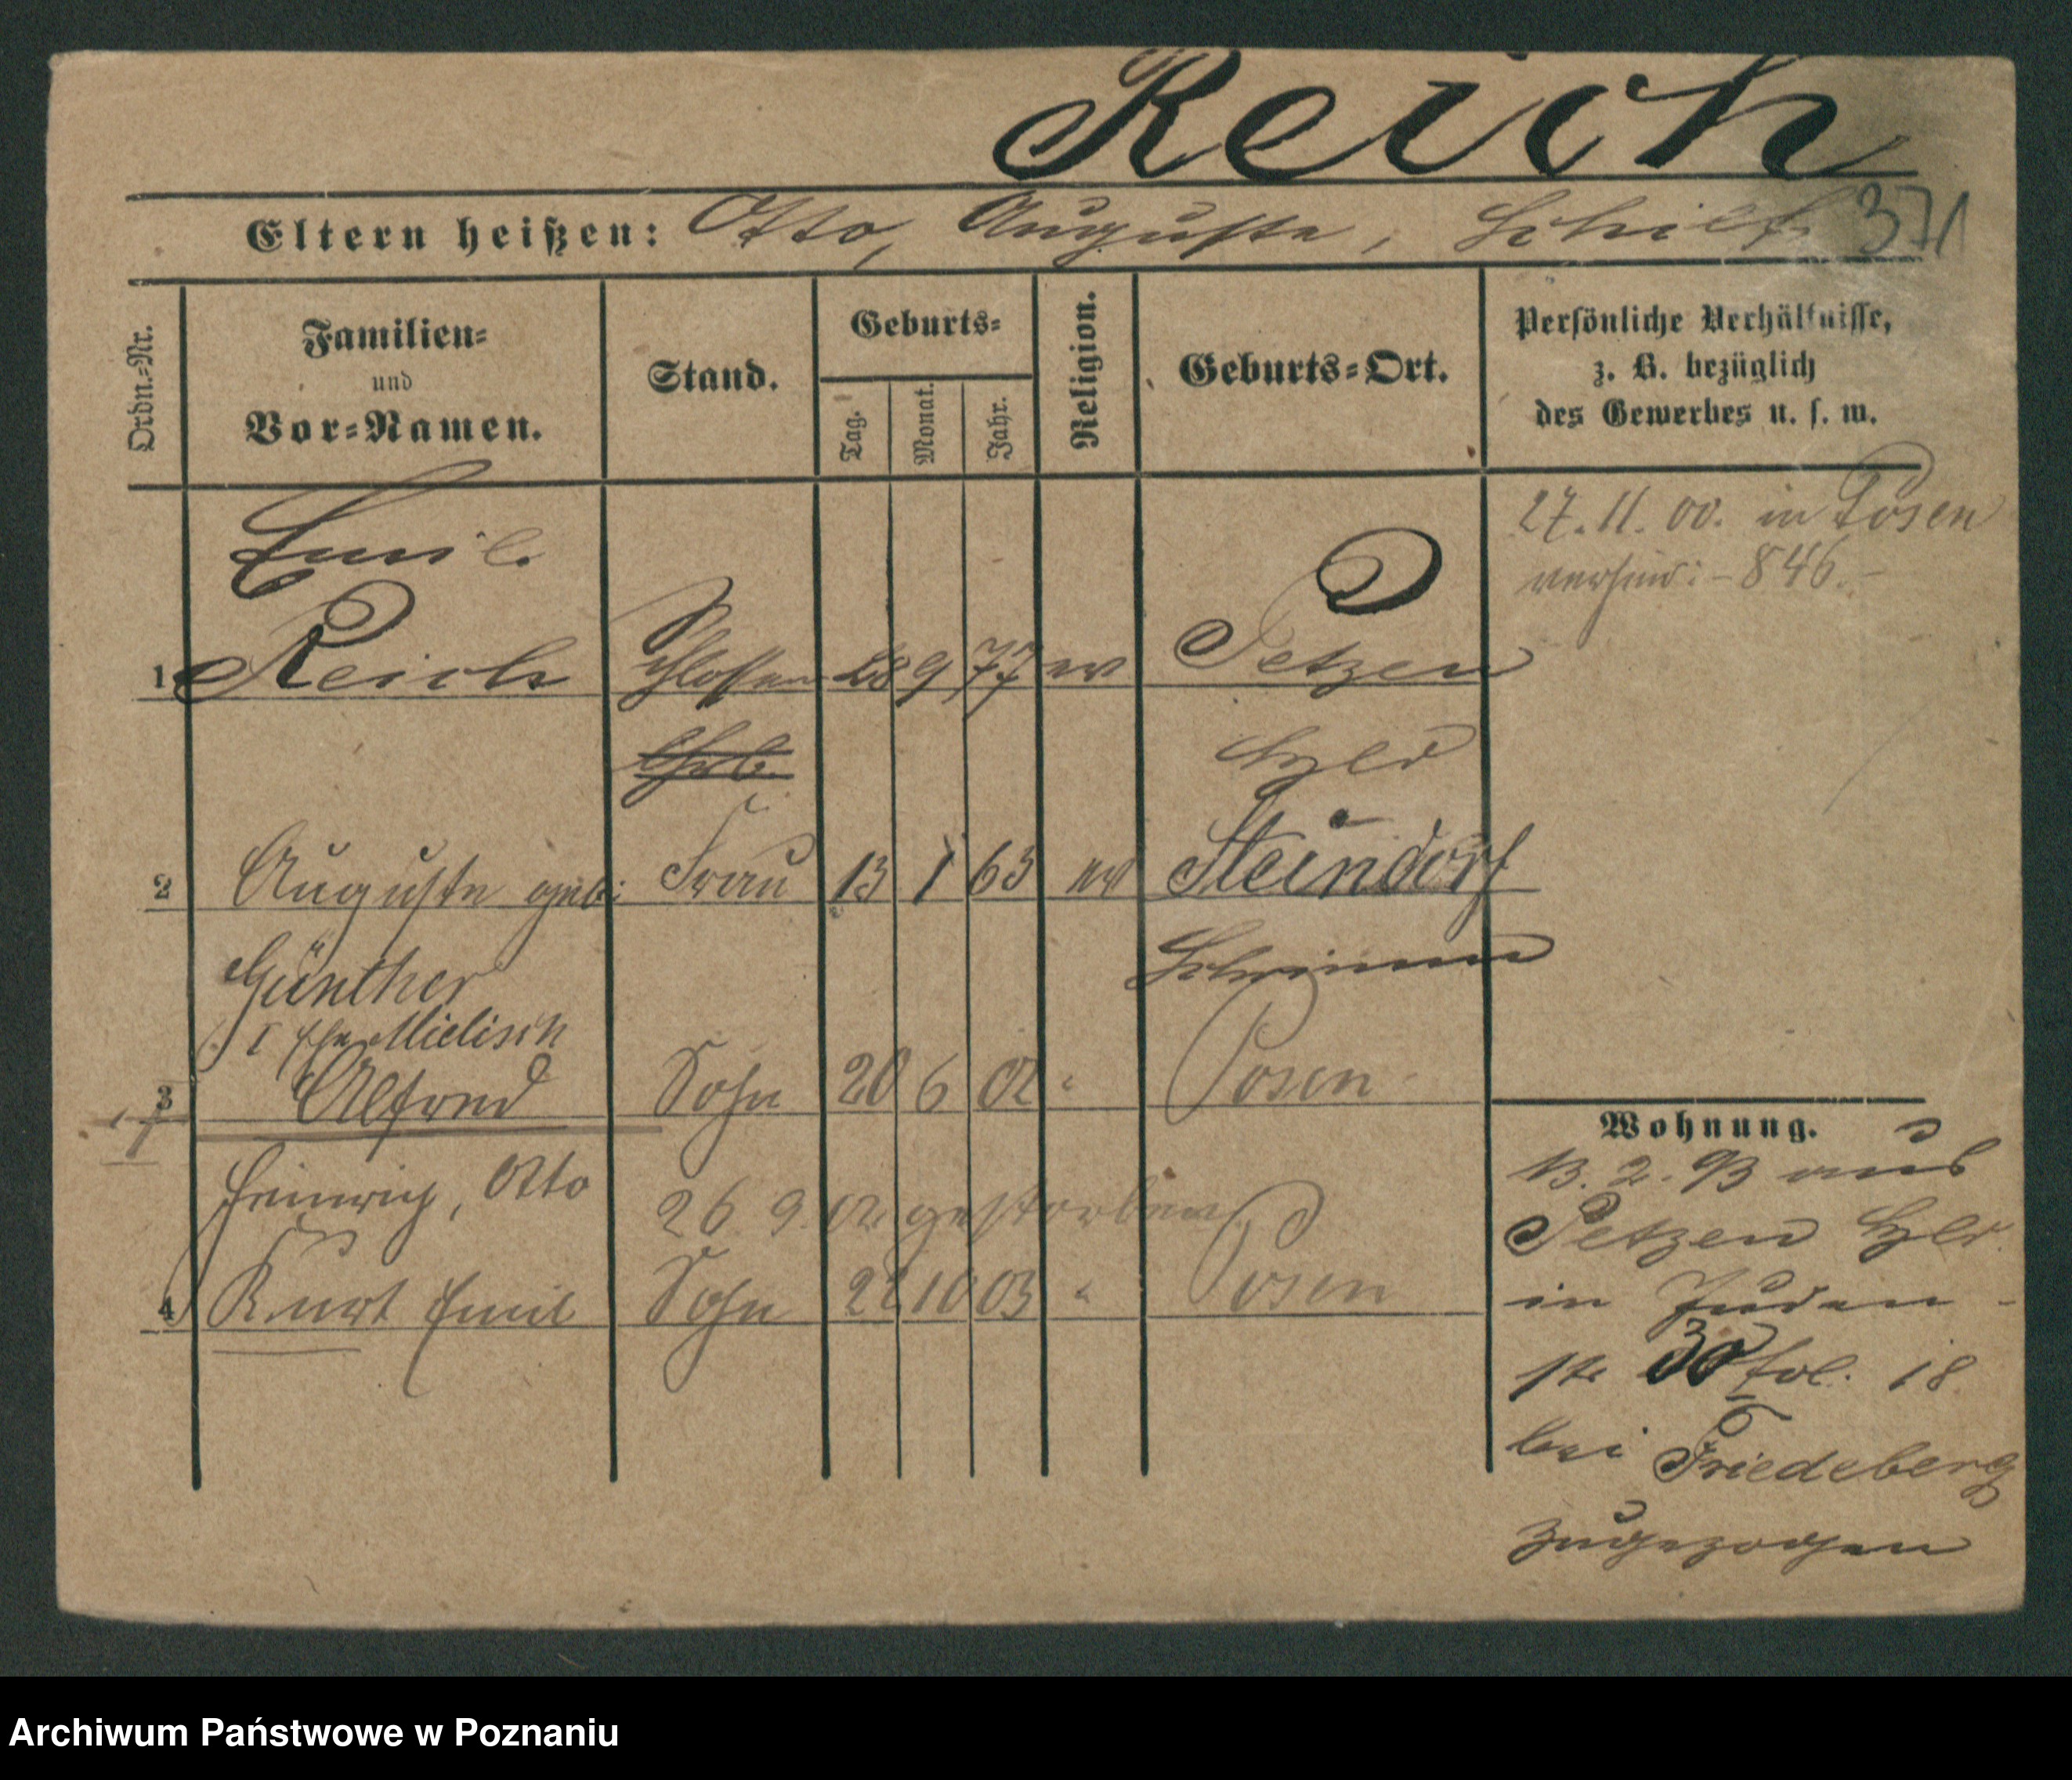 Reich
Eltern heißen: Otto, Auguste, Schilf 371
Ordn.-Nr.
Familien-
und
Vor-Namen.
Stand.
Geburts-
Tag.
Monat.
Jahr.
Religion.
Geburts-Ort.
Persönliche Verhältnisse,
z. B. bezüglich
des Gewerbes u. s. w.
27. 11. 00. in Posen
verheir: - 846. -
Emil
1 Reich Schlosser 28 9 77 ev Petzen
Lehrl.
2 Auguste geb: Frau 13 1 63 ev Steindorf
Günther Schrimm
I Ehe Mielisch
3 Alfred Sohn 20 6 02 " Posen
Heinrich, Otto 26 9. 02 gestorben
4 Kurt Emil Sohn 22 10 03 " Posen
Wohnung.
13. 2. 93 aus
Petzen
in Juden-
str 30 fol. 18
bei Friedeberg
zugezogen
Archiwum Państwowe w Poznaniu